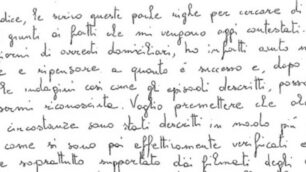 dice, le scrivo queste poche righe per cercare di
giunta ai fatti che mi vengono oggi contestati.
giorni di arresti domiciliari, ho infatti avuto m
e e ripensare a quanto è successo e, dopo
le indagini così come gli episodi descritti, posso
sermi riconosciuta. Voglio premettere che
circostanze sono stati descritti in modo più
come si sono poi effettivamente verificati e
e soprattutto supportato dai filmati degli